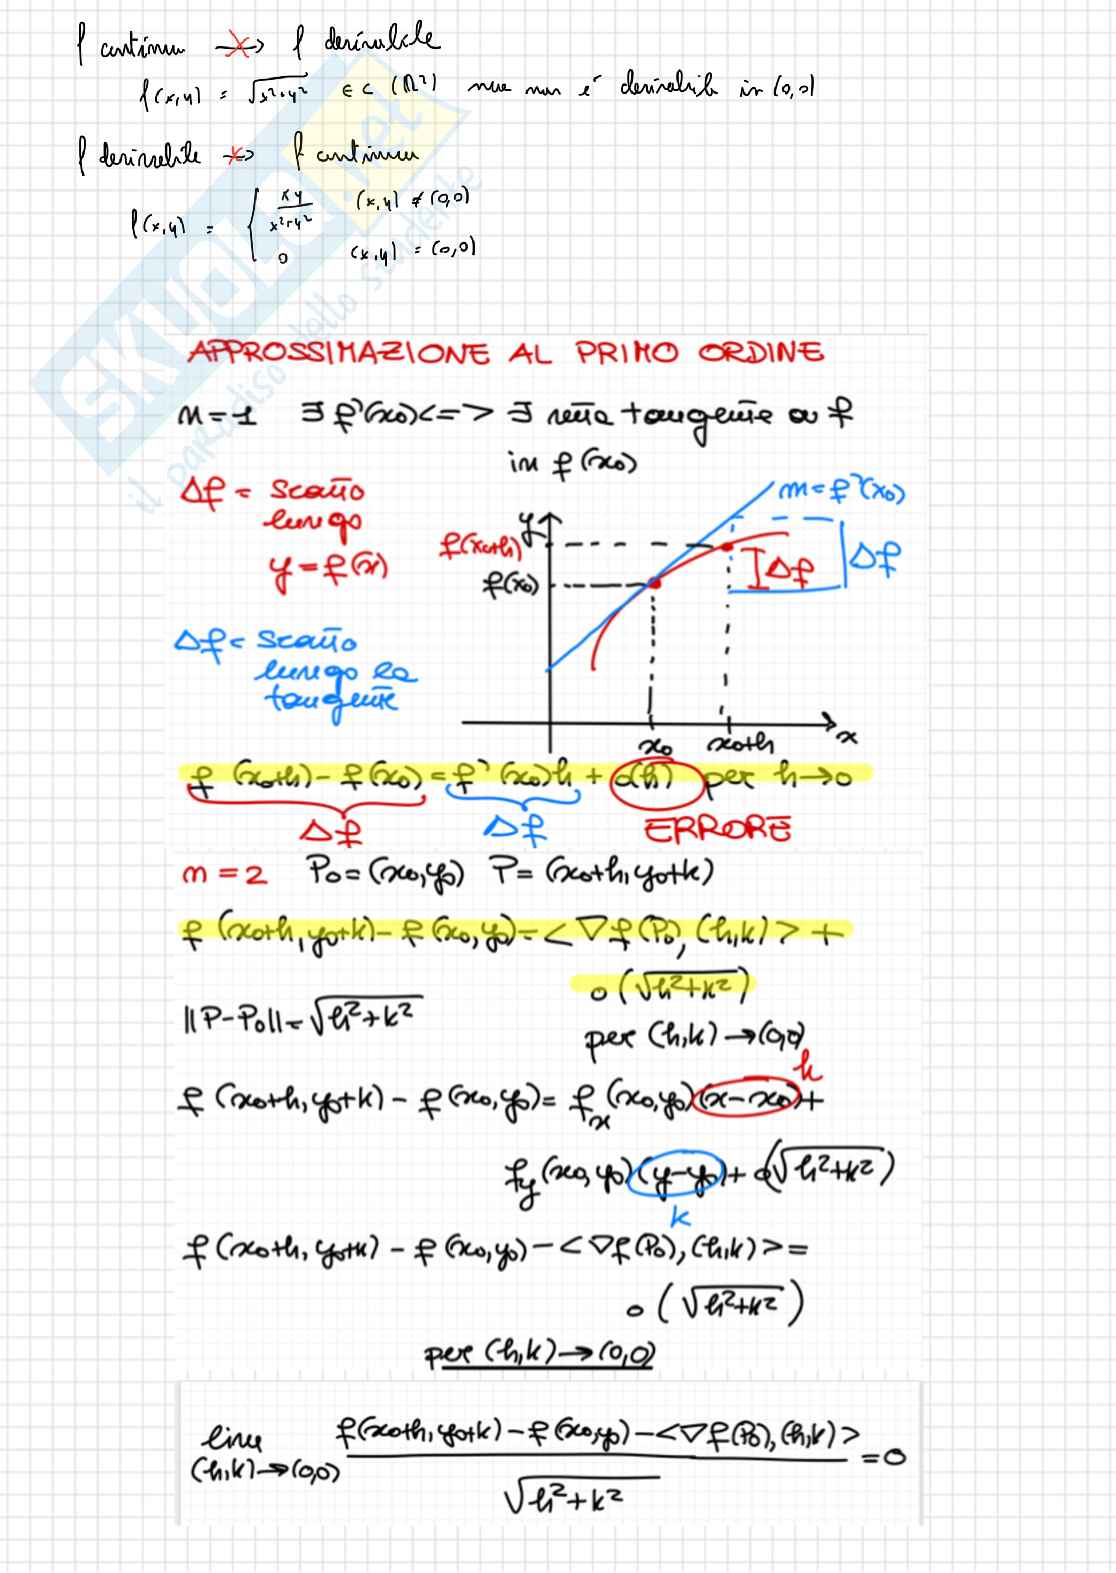 f continua ↛ f derivabile
f(x,y) = √x²+y² ∈ C (ℝ²) ma non è derivabile in (0,0)
f derivabile ↛ f continua
f(x,y) = { xy / x²+y² (x,y) ≠ (0,0)
0 (x,y) = (0,0)
SKUOLA.net
il paradiso dello studente
APPROSSIMAZIONE AL PRIMO ORDINE
n=1 ∃ f'(x0) <=> ∃ retta tangente a f
in f(x0)
Δf = scatto
lungo
y=f(x)
Δf = scatto
lungo la
tangente
m=f'(x0)
y
f(x0+h)
f(x0)
Δf
Δf
x0 x0+h x
f(x0+h)-f(x0)=f'(x0)h + o(h) per h→0
Δf Δf ERRORE
n=2 P0=(x0,y0) P=(x0+h,y0+k)
f(x0+h,y0+k)-f(x0,y0)=<∇f(P0),(h,k)>+
o(√h²+k²)
||P-P0||=√h²+k²
per (h,k)→(0,0)
h
f(x0+h,y0+k)-f(x0,y0)=fx(x0,y0)(x-x0)+
fy(x0,y0)(y-y0)+o(√h²+k²)
k
f(x0+h,y0+k)-f(x0,y0)-<∇f(P0),(h,k)>=
o(√h²+k²)
per (h,k)→(0,0)
lim (h,k)→(0,0) f(x0+h,y0+k)-f(x0,y0)-<∇f(P0),(h,k)> / √h²+k² =0